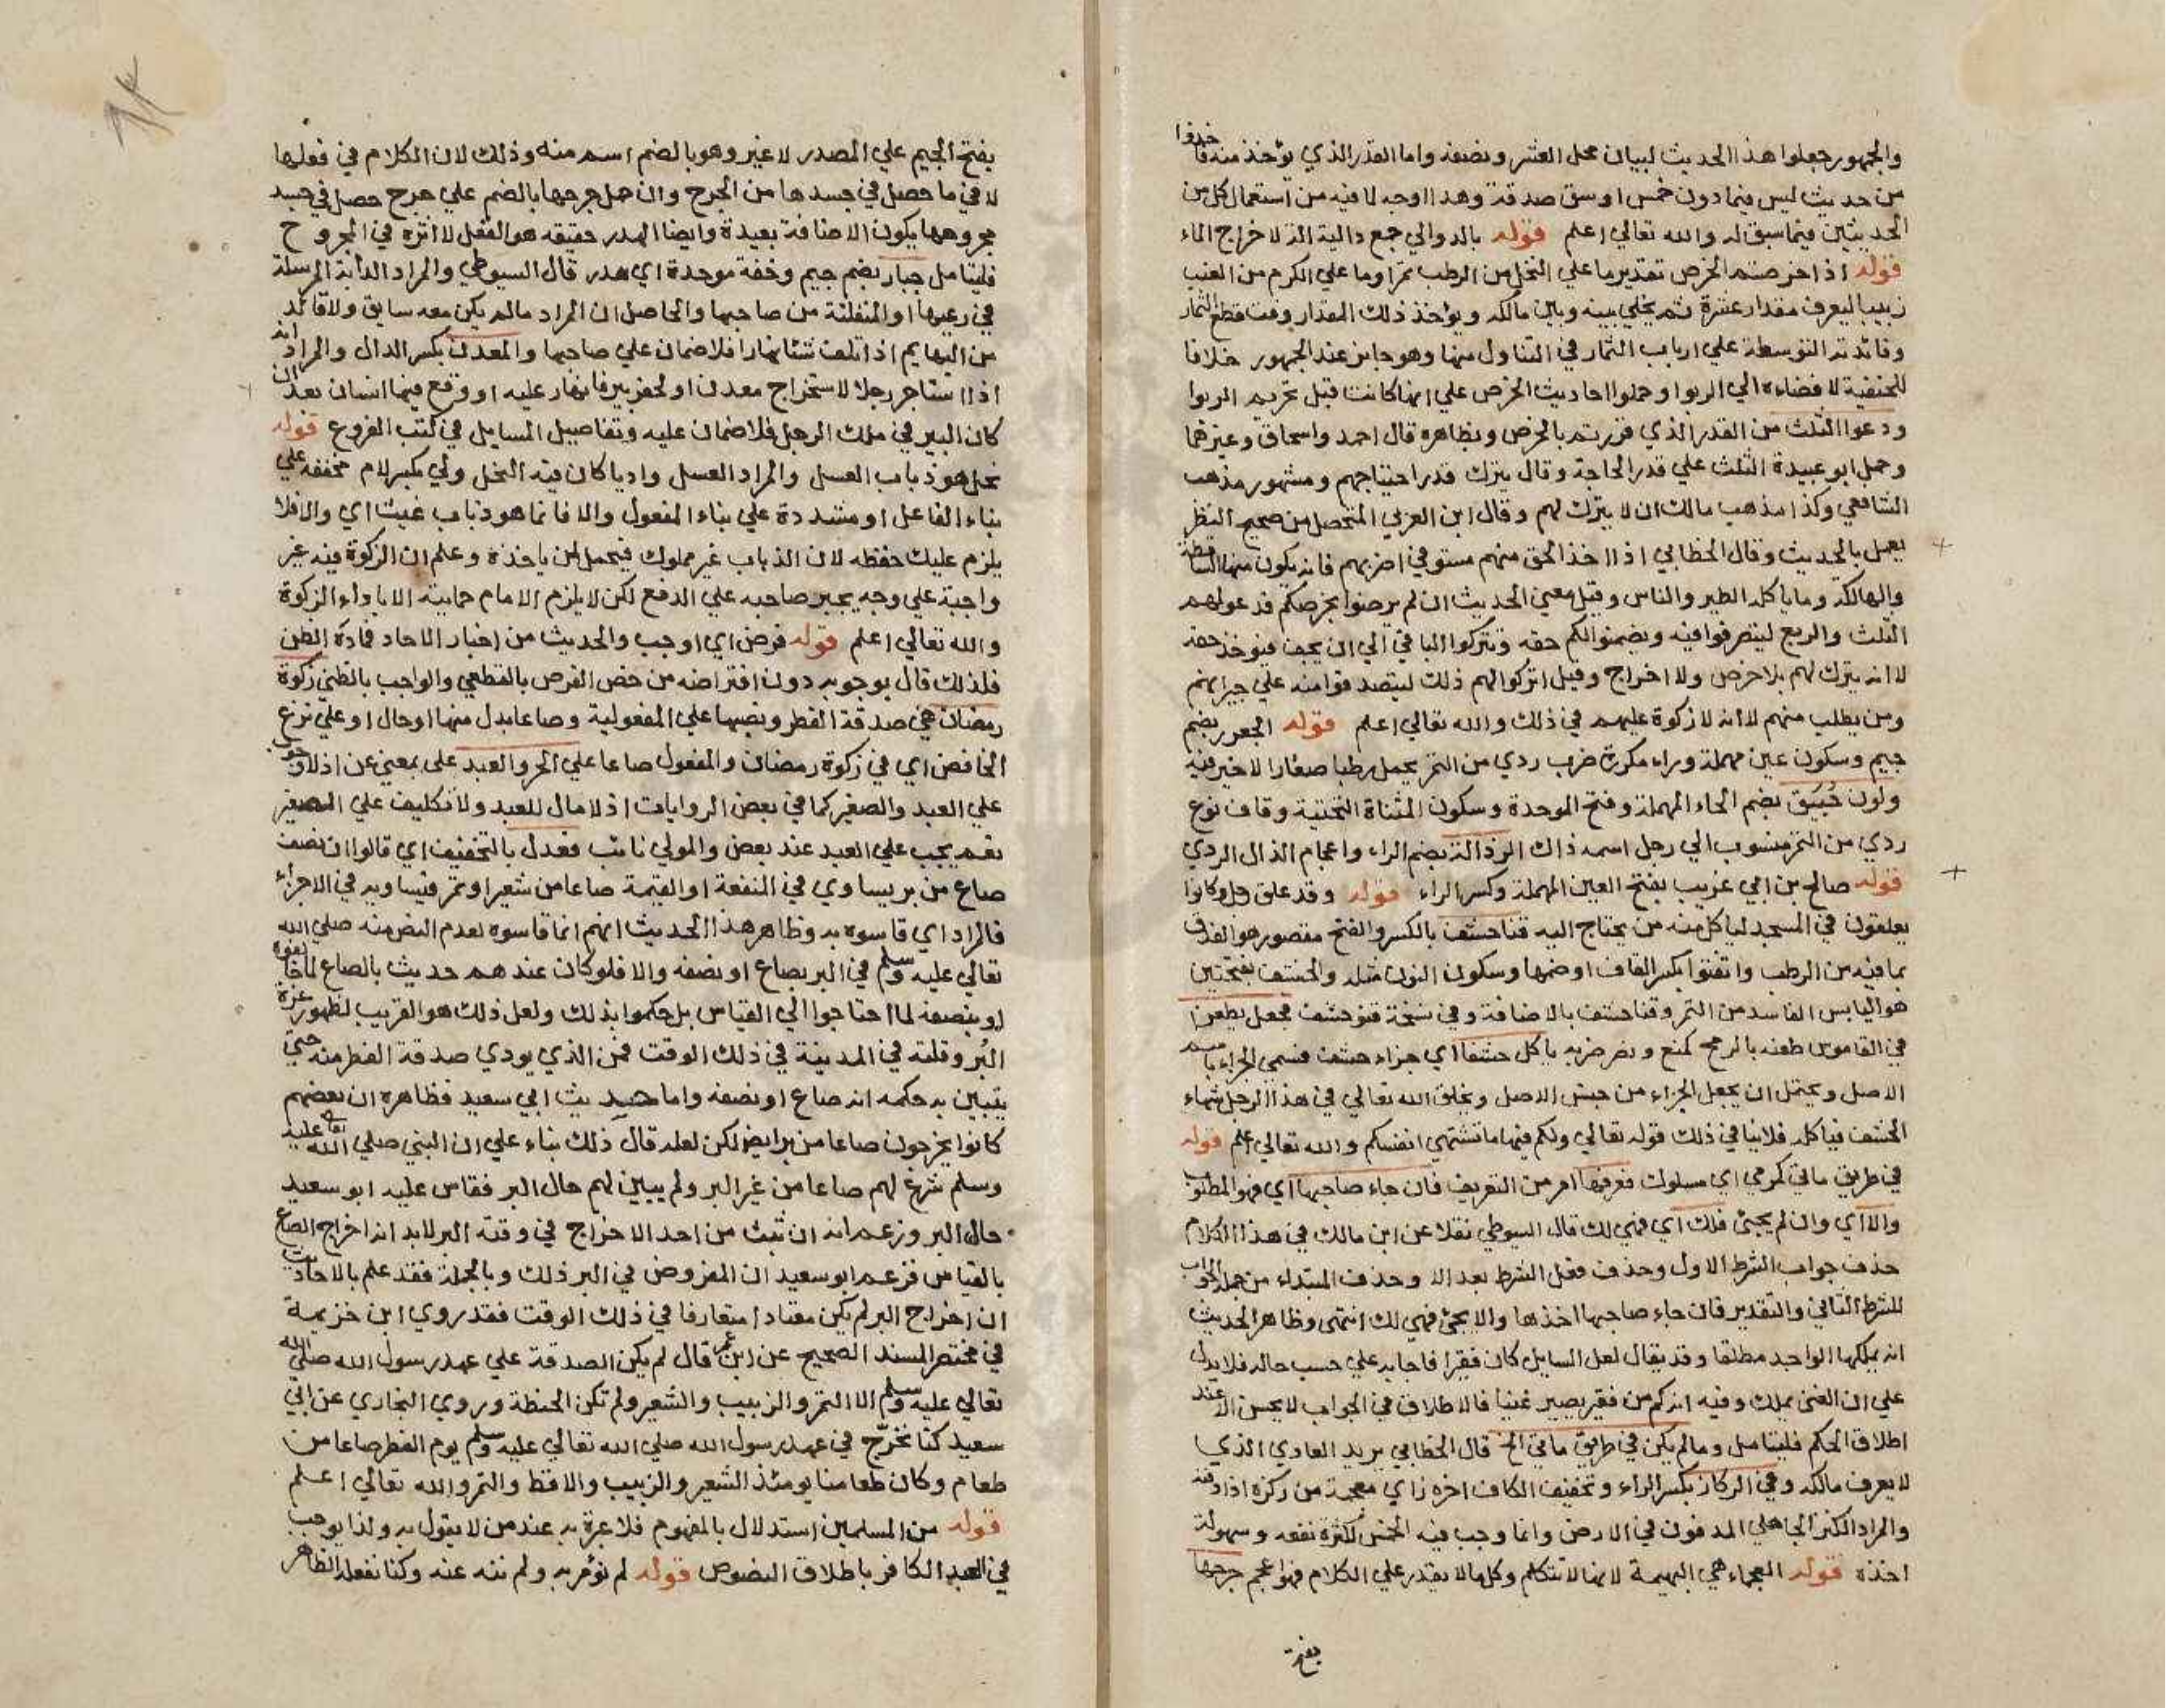 والجمهور جعلوا هذا الحديث لبيان محل العشر ونصفه واما القدر الذي يؤخذ منه فاخذوا
من حديث ليس فيما دون خمس اوسق صدقة وهذا اوجه لما فيه من استعمال كل من
الحديثين فيما سبق له والله تعالي اعلم قوله بالدوالي جمع دالية الة لاخراج الماء
قوله اذا خرصتم الخرص تقدير ما علي النخل من الرطب تمرا وما علي الكرم من العنب
زبيبا ليعرف مقدار عشرة ثم يخلي بينه وبين مالكه ويؤخذ ذلك المقدار وقت قطع الثمار
وفائدته التوسعة علي ارباب الثمار في التناول منها وهو جايز عند الجمهور خلافا
للحنفية لافضاءه الي الربوا وحملوا احاديث الخرص علي انها كانت قبل تحريم الربوا
ودعوا الثلث من القدر الذي قررتم بالخرص وبظاهره قال احمد واسحاق وغيرهما
وحمل ابو عبيدة الثلث علي قدر الحاجة وقال يترك قدر احتياجهم ومشهور مذهب
الشافعي وكذا مذهب مالك ان لا يترك لهم وقال ابن العربي المتحصل من صحيح النظر
يعمل بالحديث وقال الخطابي اذا اخذ الحق منهم مستوفي اضر بهم فانه يكون منها الساقطة
والهالكة وما ياكله الطير والناس وقيل معني الحديث ان لم يرضوا بخرصكم فدعوا لهم
الثلث والربع ليتصرفوا فيه ويضمنوا لكم حقه وتتركوا الباقي الي ان يجف فيؤخذ حقه
لا انه يترك لهم بلا خرص ولا اخراج وقيل اتركوا لهم ذلك ليتصدقوا منه علي جيرانهم
ومن يطلب منهم لا انه لا زكوة عليهم في ذلك والله تعالي اعلم قوله الجعرور بضم
جيم وسكون عين مهملة وراء مكررة ضرب ردي من التمر يحمل رطبا صغارا لا خير فيه
ولون حُبَيق بضم الحاء المهملة وفتح الموحدة وسكون المثناة التحتية وقاف نوع
ردي من التمر منسوب الي رجل اسمه ذاك الرذالة بضم الراء واعجام الذال الردي
قوله صالح بن ابي عريب بفتح العين المهملة وكسر الراء قوله وقد علق رجل وكانوا
يعلقون في المسجد لياكل منه من يحتاج اليه قنا حشف بالكسر والفتح مقصور هو العذق
بما فيه من الرطب واتفقوا بكسر القاف او ضمها وسكون النون مثله والحشف بفتحتين
هو اليابس الفاسد من التمر وقنا حشف بالاضافة وفي نسخة قنو حشف فجعل يطعن
في القاموس طعنه بالرمح كمنع ونصر ضربه ياكل حشفا اي جزاء حشف فسمي الجزاء باسم
الاصل ويحتمل ان يجعل الجزاء من جنس الاصل ويخلق الله تعالي في هذا الرجل شهاء
الحشف فياكله فلا ينافي ذلك قوله تعالي ولكم فيها ما تشتهي انفسكم والله تعالي اعلم قوله
في طريق ماتي كرمي اي مسلوك فعرفها امر من التعريف فان جاء صاحبها اي فهو المطلوب
والا اي وان لم يجئ فلك اي فهي لك قال السيوطي نقلا عن ابن مالك في هذا الكلام
حذف جواب الشرط الاول وحذف فعل الشرط بعد الا وحذف المبتداء من جملة الجواب
للشرط الثاني والتقدير فان جاء صاحبها اخذها والا يجئ فهي لك انتهي وظاهر الحديث
انه يملكها الواجد مطلقا وقد يقال لعل السايل كان فقيرا فاجابه علي حسب حاله فلا يدل
علي ان الغني يملك وفيه انه كم من فقير يصير غنيا فالاطلاق في الجواب لا يحسن الا عند
اطلاق الحكم فليتامل وما لم يكن في طريق ماتي الخ قال الخطابي يريد العادي الذي
لا يعرف مالكه وفي الركاز بكسر الراء وتخفيف الكاف اخره زاي معجمة من ركزه اذا دفنه
والمراد الكنز الجاهلي المدفون في الارض وانما وجب فيه الخمس لكثرة نفعه وسهولة
اخذه قوله العجماء هي البهيمة لانها لا تتكلم وكل ما لا يقدر علي الكلام فهو اعجم جرحها
بفتح
بفتح الجيم علي المصدر لا غير وهو بالضم اسم منه وذلك لان الكلام في فعلها
لا في ما حصل في جسدها من الجرح وان حمل جرحها بالضم علي جرح حصل في جسد
مجروحها يكون الاضافة بعيدة وايضا الهدر حقيقة هو الفعل لا اثره في المجروح
فليتامل جبار بضم جيم وخفة موحدة اي هدر قال السيوطي والمراد الدابة المرسلة
في رعيها او المنفلتة من صاحبها والحاصل ان المراد ما لم يكن معه سايق ولا قائد
من البهايم اذا اتلفت شئا نهارا فلا ضمان علي صاحبها والمعدن بكسر الدال والمراد انه
اذا استاجر رجلا لاستخراج معدن او لحفر بير فانهار عليه او وقع فيها انسان بعد ان
كان البير في ملك الرجل فلا ضمان عليه وتفاصيل المسايل في كتب الفروع قوله
نحل هو ذباب العسل والمراد العسل واديا كان فيه النحل ولي بكسر لام مخففة علي
بناء الفاعل او مشددة علي بناء المفعول والا فانما هو ذباب غيث اي والا فلا
يلزم عليك حفظه لان الذباب غير مملوك فيحمل لمن ياخذه وعلم ان الزكوة فيه غير
واجبة علي وجه يجبر صاحبه علي الدفع لكن لا يلزم الامام حمايته الا باداء الزكوة
والله تعالي اعلم قوله فرض اي اوجب والحديث من اخبار الاحاد فمادة الظن
فلذلك قال بوجوبه دون افتراضه من خص الفرض بالقطعي والواجب بالظني زكوة
رمضان هي صدقة الفطر ونصبها علي المفعولية وصاعا بدل منها او حال او علي نزع
الخافض اي في زكوة رمضان والمفعول صاعا علي الحر والعبد علي بمعني عن اذ لا وجوب
علي العبد والصغير كما في بعض الروايات اذ لا مال للعبد ولا تكليف علي الصغير
نعم يجب علي العبد عند بعض والمولي نائب فعدل بالتخفيف اي قالوا ان نصف
صاع من بر يساوي في المنفعة او القيمة صاعا من شعير او تمر فيساويه في الاجزاء
فالمراد اي قاسوه به وظاهر هذا الحديث انهم انما قاسوه لعدم النص منه صلي الله
تعالي عليه وسلم في البر بصاع او نصفه والا فلو كان عندهم حديث بالصاع لما خالفوه
او بنصفه لما احتاجوا الي القياس بل حكموا بذلك ولعل ذلك هو القريب لظهور عزة
البُر وقلته في المدينة في ذلك الوقت فمن الذي يودي صدقة الفطر منه حتي
يتبين به حكمه انه صاع او نصفه واما حديث ابي سعيد فظاهره ان بعضهم
كانوا يخرجون صاعا من بر ايضا لكن لعله قال ذلك بناء علي ان النبي صلي الله تعا عليه
وسلم شرع لهم صاعا من غير البر ولم يبين لهم حال البر فقاس عليه ابو سعيد
حال البر وزعم انه ان ثبت من احد الاخراج في وقته البر لابد انه اخراج الصاع
بالقياس فزعم ابو سعيد ان المفروض في البر ذلك وبالجملة فقد علم بالاحاديث
ان اخراج البر لم يكن معتادا متعارفا في ذلك الوقت فقد روي ابن خزيمة
في مختصر المسند الصحيح عن ابن عمر قال لم يكن الصدقة علي عهد رسول الله صلي الله
تعالي عليه وسلم الا التمر والزبيب والشعير ولم تكن الحنطة وروي البخاري عن ابي
سعيد كنا نخرج في عهد رسول الله صلي الله تعالي عليه وسلم يوم الفطر صاعا من
طعام وكان طعامنا يومئذ الشعير والزبيب والاقط والتمر والله تعالي اعلم
قوله من المسلمين استدلال بالمفهوم فلا عبرة به عند من لا يقول به ولذا يوجب
في العبد الكافر باطلاق النصوص قوله لم نؤمر به ولم ننه عنه وكنا نفعله الظاهر